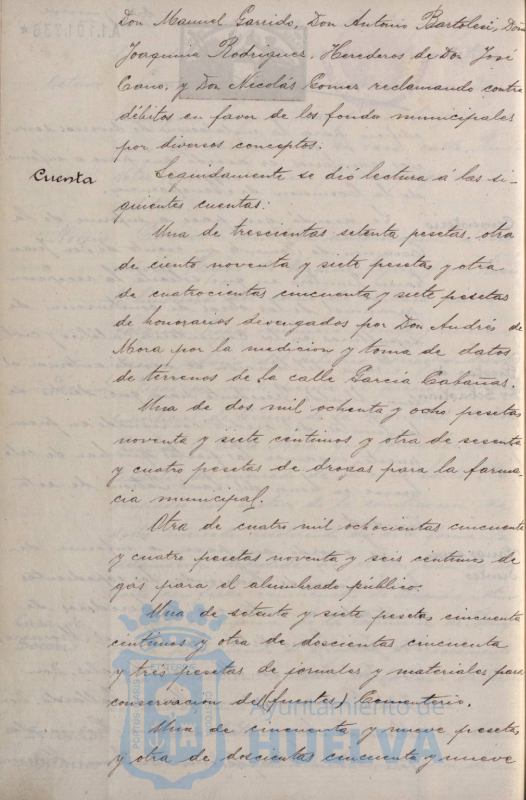 Don Manuel Garrido, Don Antonio Bartolesi, Don
Joaquina Rodriguez, Herederos de Don José
Cano, y Don Nicolás Gomez reclamando contra
débitos en favor de los fondos municipales
por diversos conceptos.
Cuenta
Seguidamente se dió lectura á las si-
guientes cuentas:
Una de trescientas setenta pesetas, otra
de ciento noventa y siete pesetas y otra
de cuatrocientas cincuenta y siete pesetas
de honorarios devengados por Don Andrés de
Mora por la medicion y toma de datos
de terrenos de la calle Garcia Cabañas.
Una de dos mil ochenta y ocho pesetas
noventa y siete céntimos y otra de sesenta
y cuatro pesetas de drogas para la farma-
cia municipal.
Otra de cuatro mil ochocientas cincuenta
y cuatro pesetas noventa y seis centimos de
gas para el alumbrado público.
Una de setenta y siete pesetas cincuenta
centimos y otra de doscientas cincuenta
y tres pesetas de jornales y materiales para
conservacion de (fuentes) Cementerio.
Una de cincuenta y nueve pesetas
y otra de doscientas cincuenta y nueve
Ayuntamiento de
HUELVA